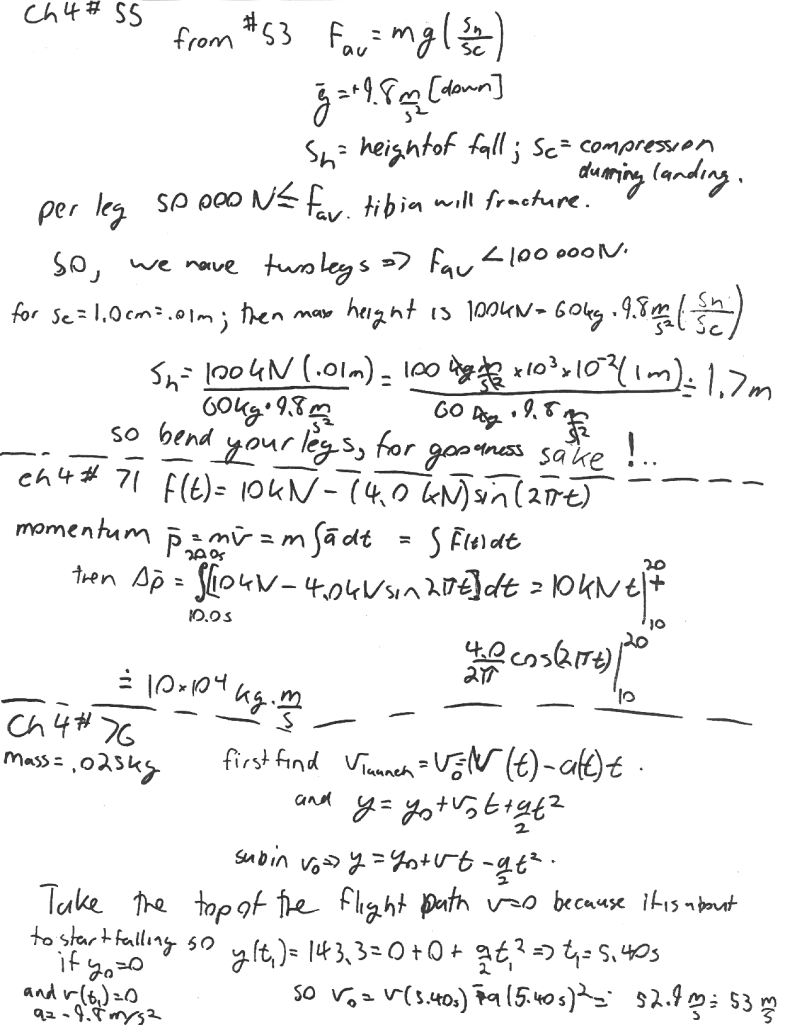 Ch 4 # 55
from #53 F_av = mg(s_h/s_c)
g̅ = +9.8 m/s² [down]
s_h = height of fall; s_c = compression
durring landing.
per leg 50 000 N ≤ F_av. tibia will fracture.
so, we have two legs => F_av < 100 000 N.
for s_c = 1.0 cm = .01m; then max height is 100kN = 60kg · 9.8 m/s² (s_h/s_c)
s_h = 100 kN (.01m)/(60kg · 9.8 m/s²) = 100 kg m/s² × 10³ × 10⁻² (1m)/(60 kg · 9.8 m/s²) ≐ 1.7m
so bend your legs, for goodness sake !..
ch 4 # 71 F(t) = 10 kN - (4.0 kN) sin(2πt)
momentum p̅ = mv̅ = m∫a̅ dt = ∫F̅(t)dt
then Δp̅ = ∫_{10.0s}^{20.0s} [10kN - 4.0kN sin 2πt] dt = 10kN t|_{10}^{20} +
4.0/2π cos(2πt)|_{10}^{20}
≐ 10×10⁴ kg · m/s
Ch 4 # 76
mass = .025kg first find v_launch = v_0 = v(t) - a(t) t .
and y = y_0 + v_0 t + a/2 t²
subin v_0 => y = y_0 + vt - a/2 t² .
Take the top of the flight path v=0 because it is about
to start falling so y(t_1) = 143.3 = 0 + 0 + a/2 t_1² => t_1 = 5.40s
if y_0 = 0
and v(t_1) = 0 so v_0 = v(5.40s) - a(5.40s)² = 52.9 m/s ≐ 53 m/s
a = -9.8 m/s²